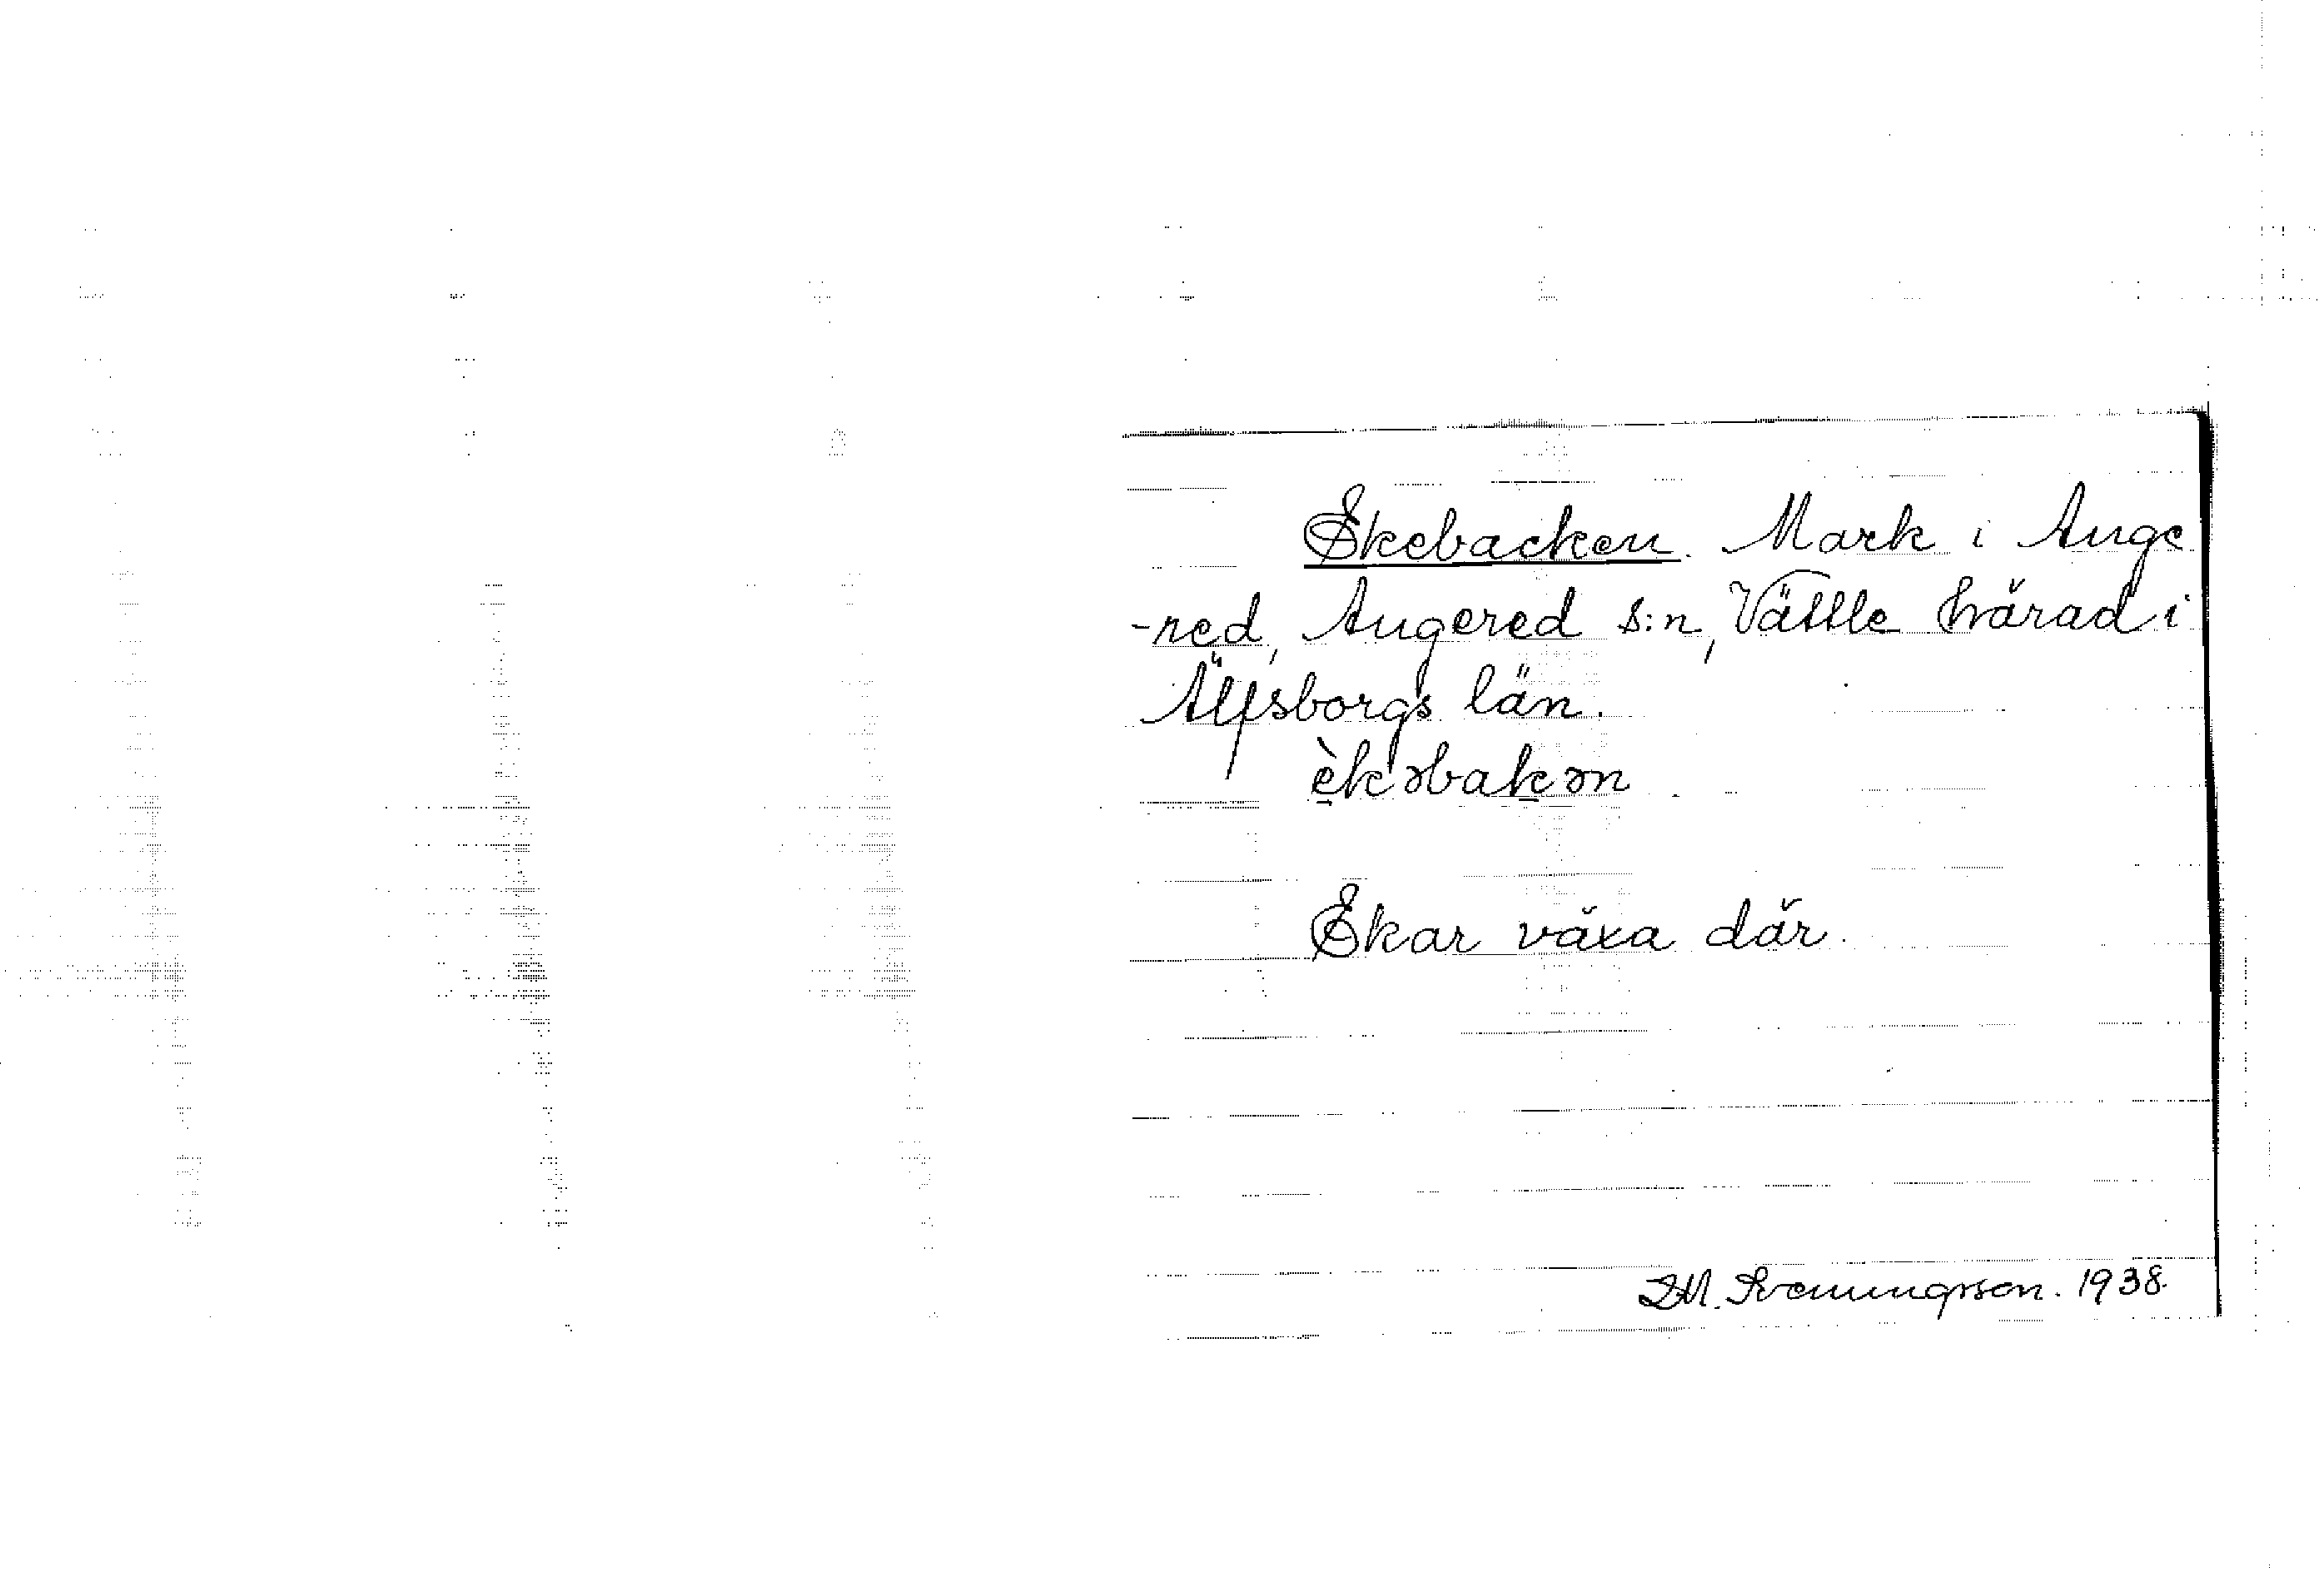 Ekebacken. Mark i Ange
-red, Angered s:n, Vättle härad i
Älfsborgs län.
èkəbakən
Ekar växa där.
1938.